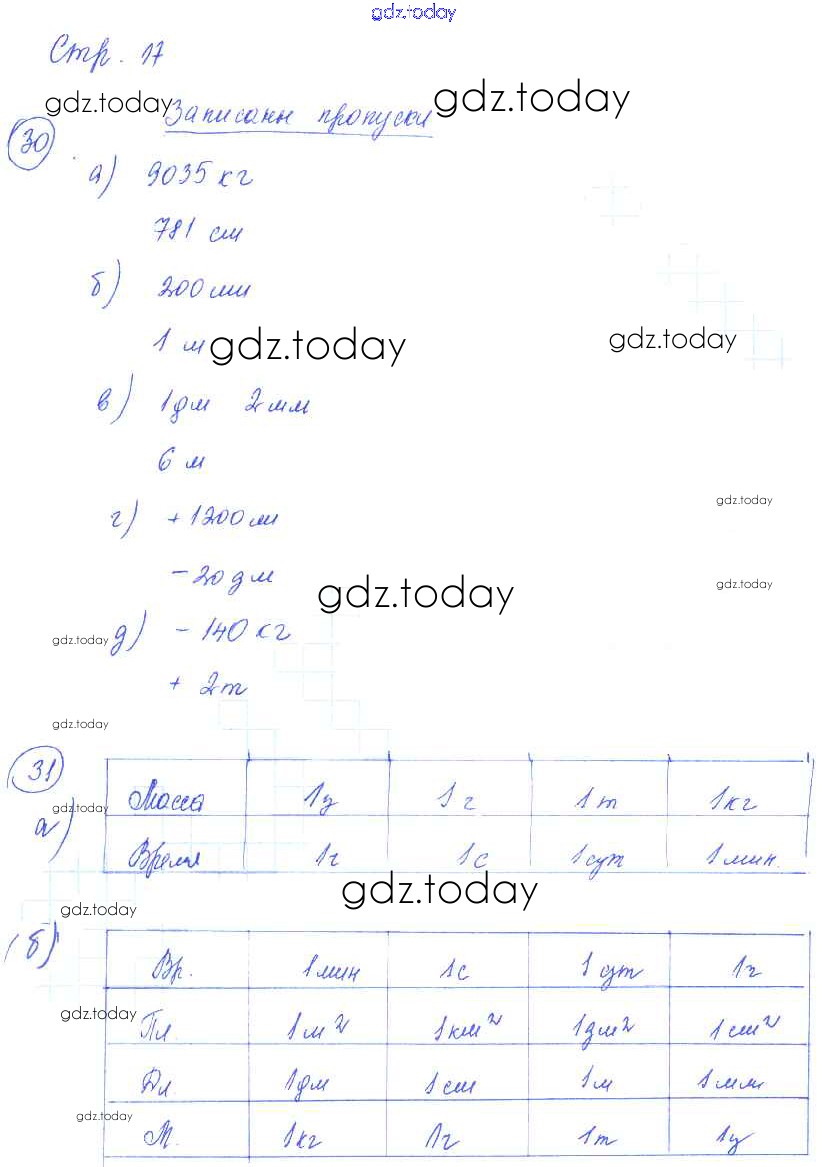 gdz.today
Стр. 17
gdz.today Записаны пропуски gdz.today
30
а) 9035 кг
781 см
б) 200 мм
1 м gdz.today gdz.today
в) 1 дм 2 мм
6 м
gdz.today
г) + 1200 м
- 20 дм gdz.today gdz.today
gdz.today д) - 140 кг
+ 2 т
gdz.today
31
а) Масса 1 ц 1 г 1 т 1 кг
gdz.today
Время 1 ч 1 с 1 сут 1 мин.
gdz.today
gdz.today
(б) Вр. 1 мин 1 с 1 сут 1 ч
gdz.today
Пл. 1 м² 1 км² 1 дм² 1 см²
Дл. 1 дм 1 см 1 м 1 мм
gdz.today
М. 1 кг 1 г 1 т 1 ц